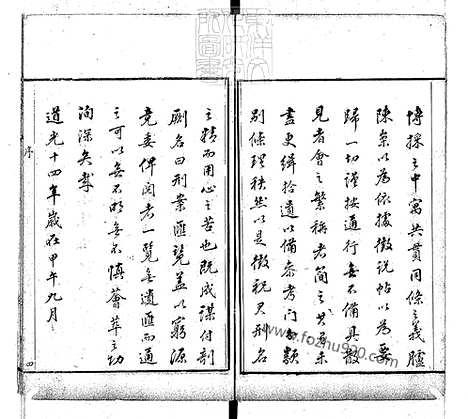 博採之中寓共貫同條之義臚
陳案以為依據徵説帖以為要
歸一切謹按通行無不備具散
見者會之繁稱者簡之其有未
盡更緝拾遺以備參考門分類
別條理秩然以是徵祝君刑名
之精而用心之苦也既成謀付剞
劂名曰刑案匯覽蓋以窮源
竟委俾閱者一覽無遺匯而通
之可以無不明無不慎薈萃之功
洵深矣哉
道光十四年歲在甲午九月
序
四
www.fozhu920.com